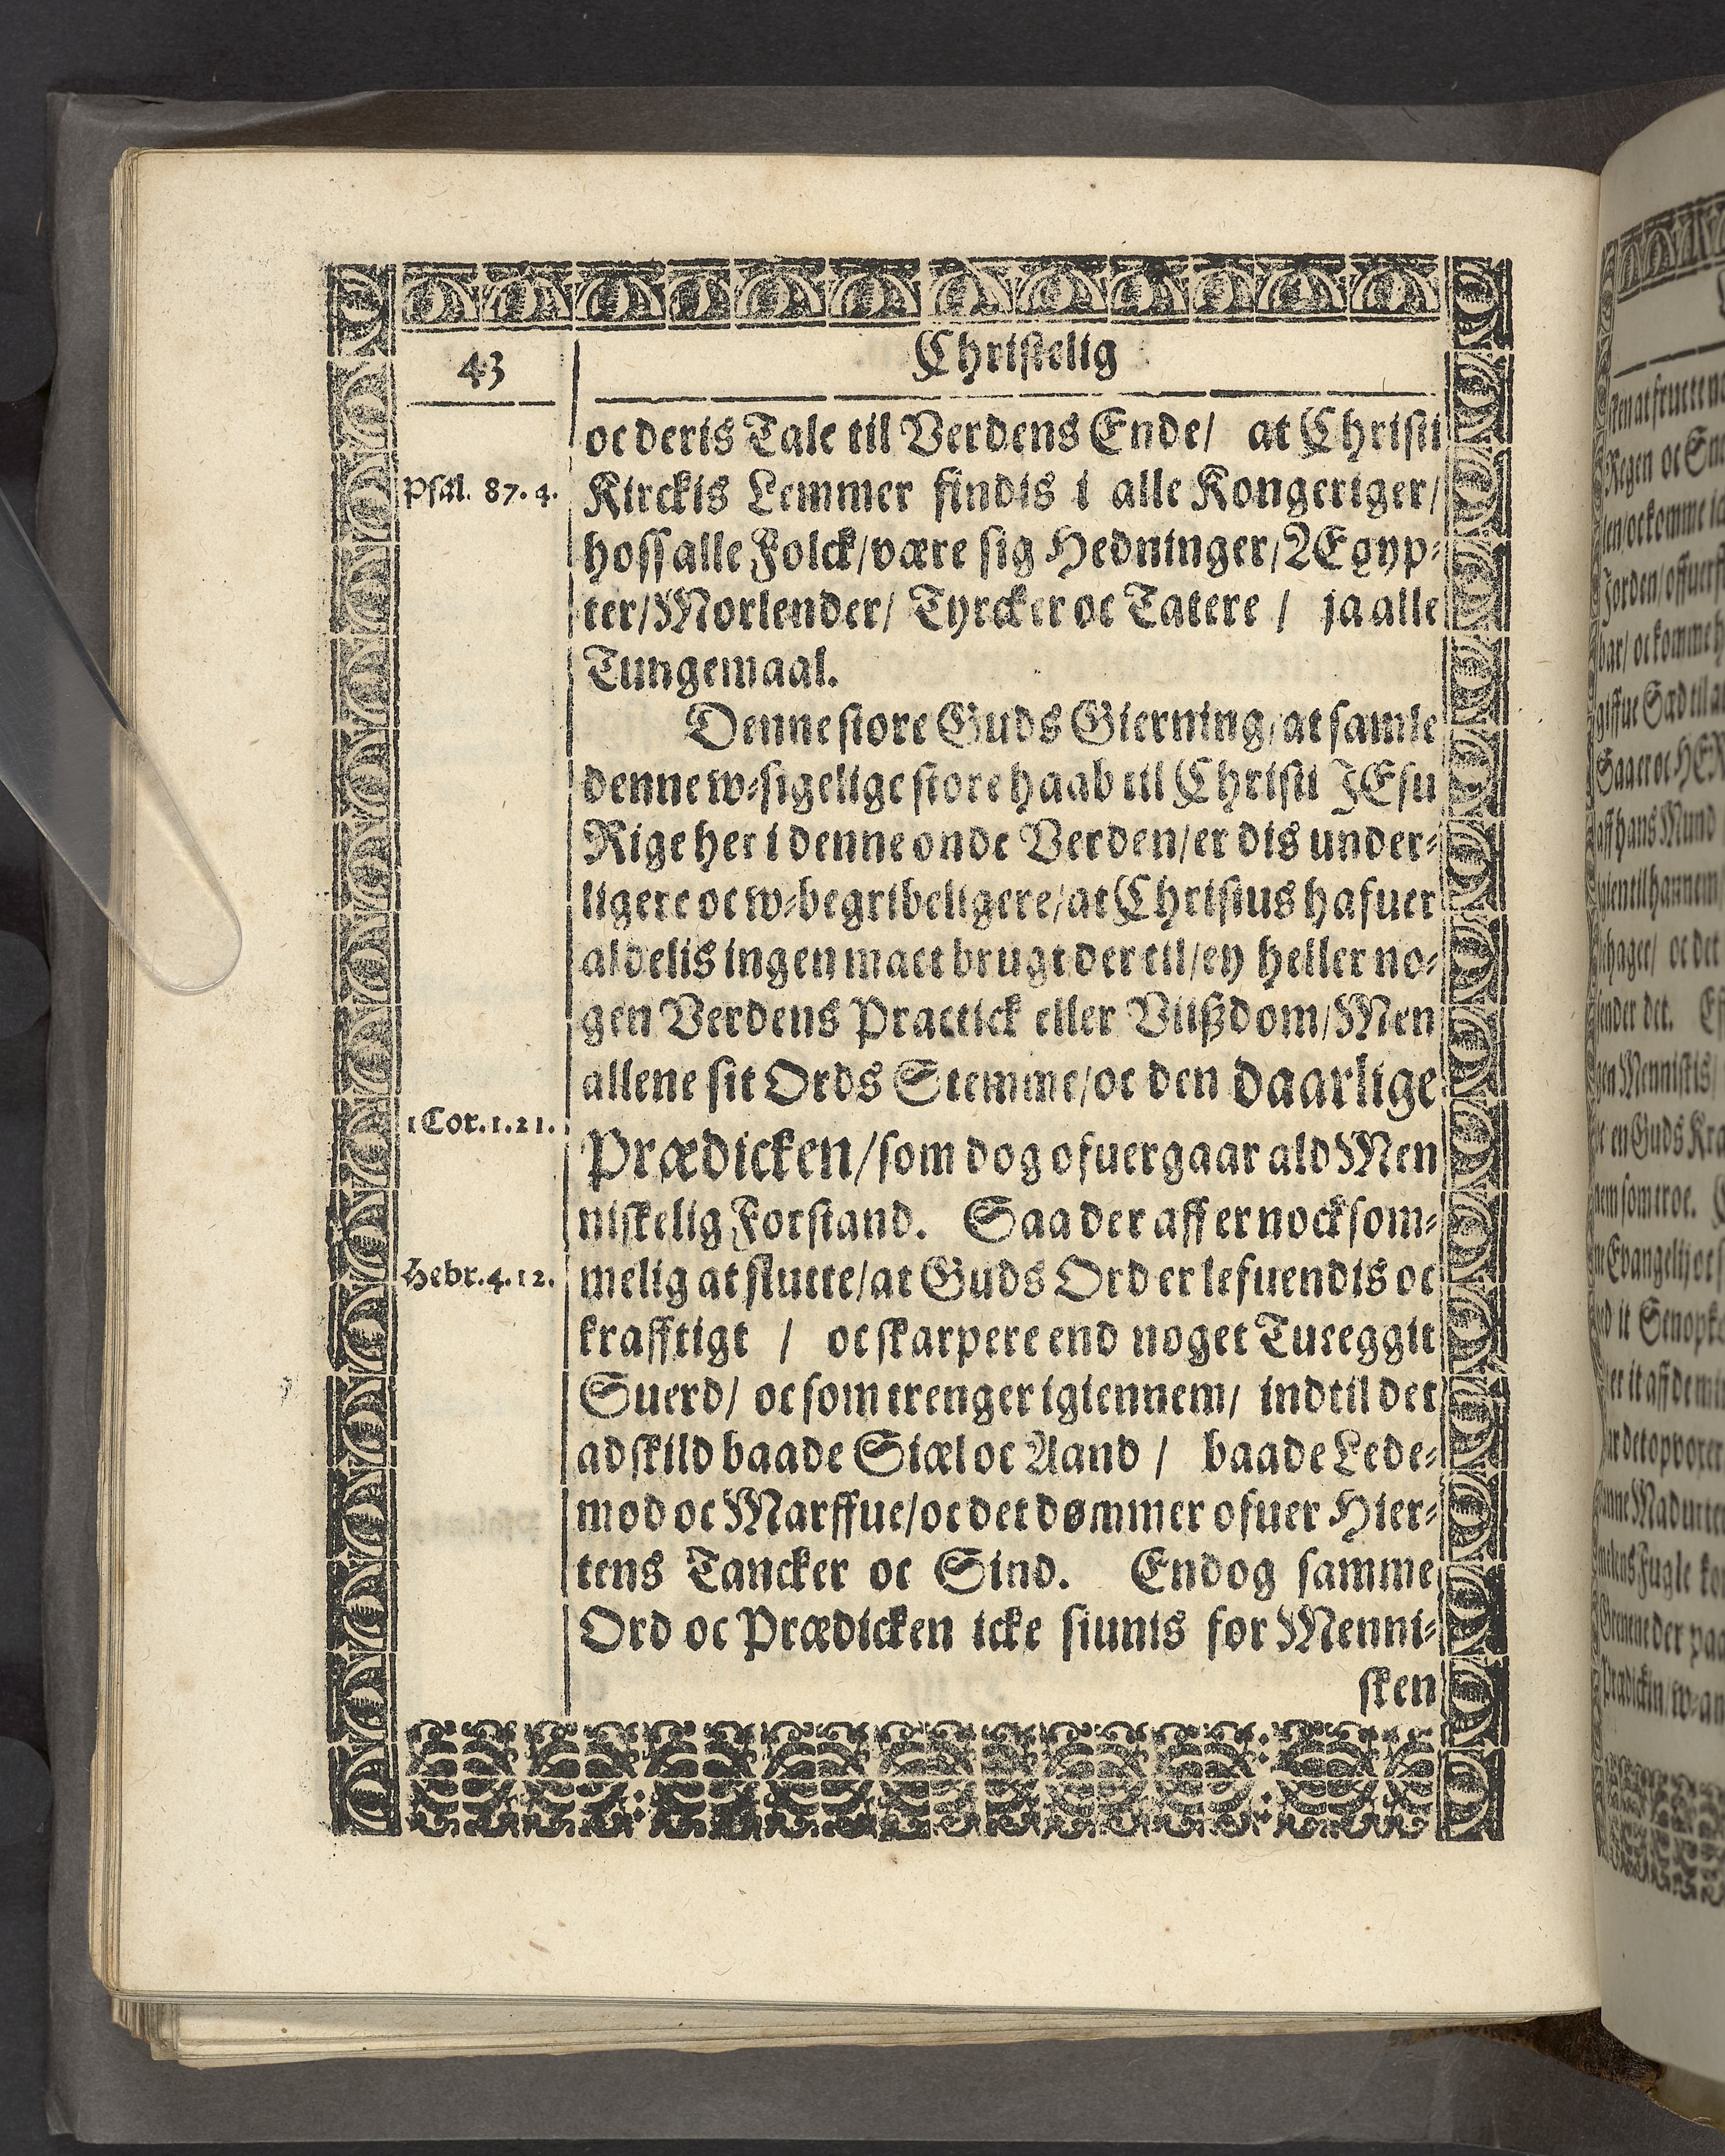 43
Christelig
oc deris Tale til Verdens Ende/ at Christi
Psal. 87.4.
Kirckis Lemmer findis i alle Kongeriger/
hoss alle Folck/være sig Hedninger/Ægyp-
ter/Morlender/ Tyrcker oc Tatere / ja alle
Tungemaal.
Denne store Guds Gierning/at samle
denne w-sigelige store haab til Christi JEsu
Rige her i denne onde Verden/er dis under-
ligere oc w-begribeligere/at Christus hafuer
aldelis ingen mact brugt der til/ey heller no-
gen Verdens Practick eller Viißdom/Men
allene sit Ords Stemme/oc den daarlige
1 Cor.1.21.
Prædicken/som dog ofuergaar ald Men
niskelig Forstand. Saa der aff er nocksom-
Hebr.4.12.
melig at slutte/at Guds Ord er lefuendis oc
krafftigt / oc skarpere end noget Tueeggit
Suerd/ oc som trenger igiennem/ indtil det
adskild baade Siæl oc Aand / baade Lede-
mod oc Marffue/oc det dømmer ofuer Hier-
tens Tancker oc Sind. Endog samme
Ord oc Prædicken icke siunis for Menni-
sken